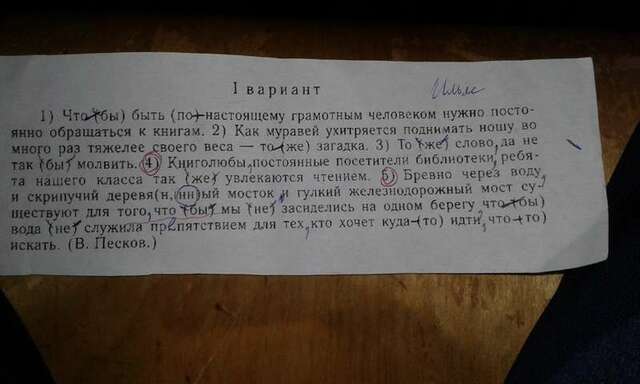 I вариант
Ильяс
1) Что (бы) быть (по) настоящему грамотным человеком нужно посто-
янно обращаться к книгам. 2) Как муравей ухитряется поднимать ношу во
много раз тяжелее своего веса — то (же) загадка. 3) То (же) слово, да не
так (бы) молвить. 4) Книголюбы, постоянные посетители библиотеки, ребя-
та нашего класса так (же) увлекаются чтением. 5) Бревно через воду,
и скрипучий деревя(н, нн)ый мосток и гулкий железнодорожный мост су-
ществуют для того, что (бы) мы (не) засиделись на одном берегу что (бы)
вода (не) служила препятствием для тех, кто хочет куда (то) идти, что (то)
искать. (В. Песков.)